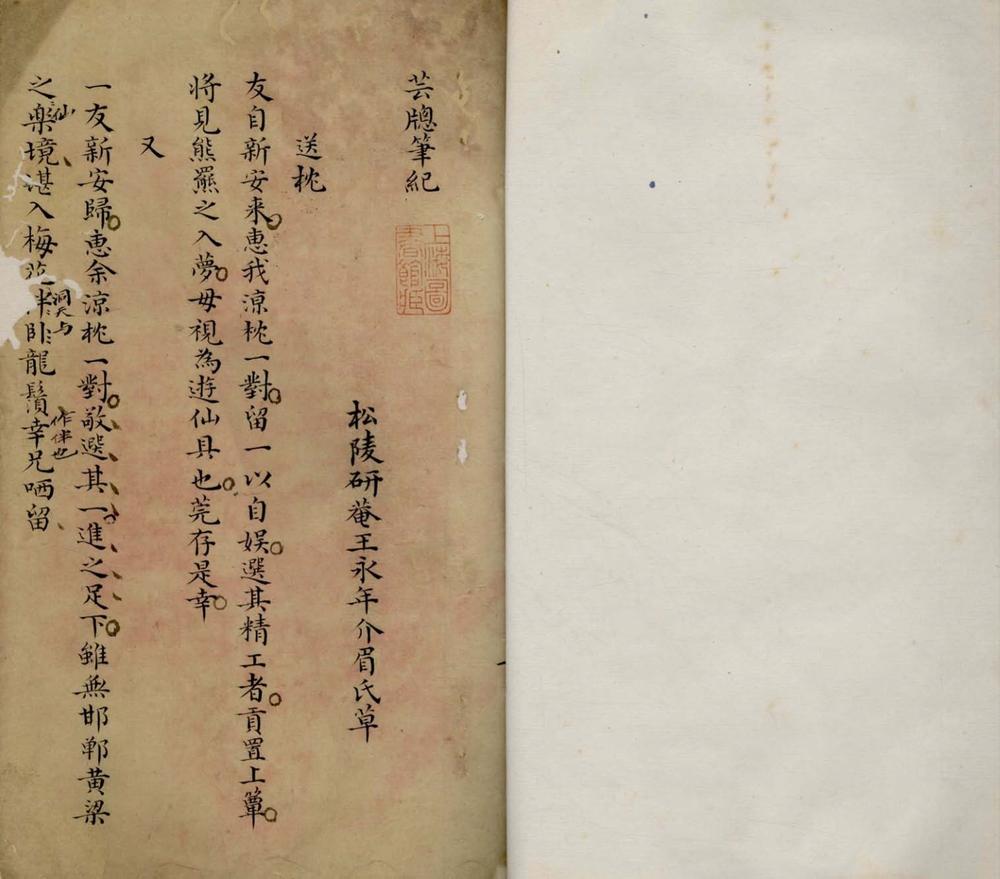 芸牕筆紀
上海圖書館藏
松陵研菴王永年介眉氏草
送枕
友自新安来惠我涼枕一對留一以自娯選其精工者貢置上簟
将見熊羆之入夢毋視為遊仙具也莞存是幸
又
一友新安歸惠余涼枕一對敬選其一進之足下雖無邯鄲黄梁
仙
之樂境湛入梅 卧龍鬚幸兄哂留
洞天与
作伴也